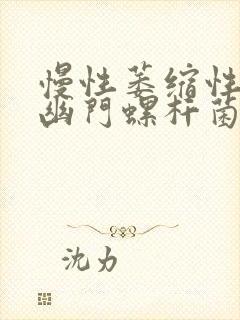 慢性萎缩性
幽门螺杆菌
沈力